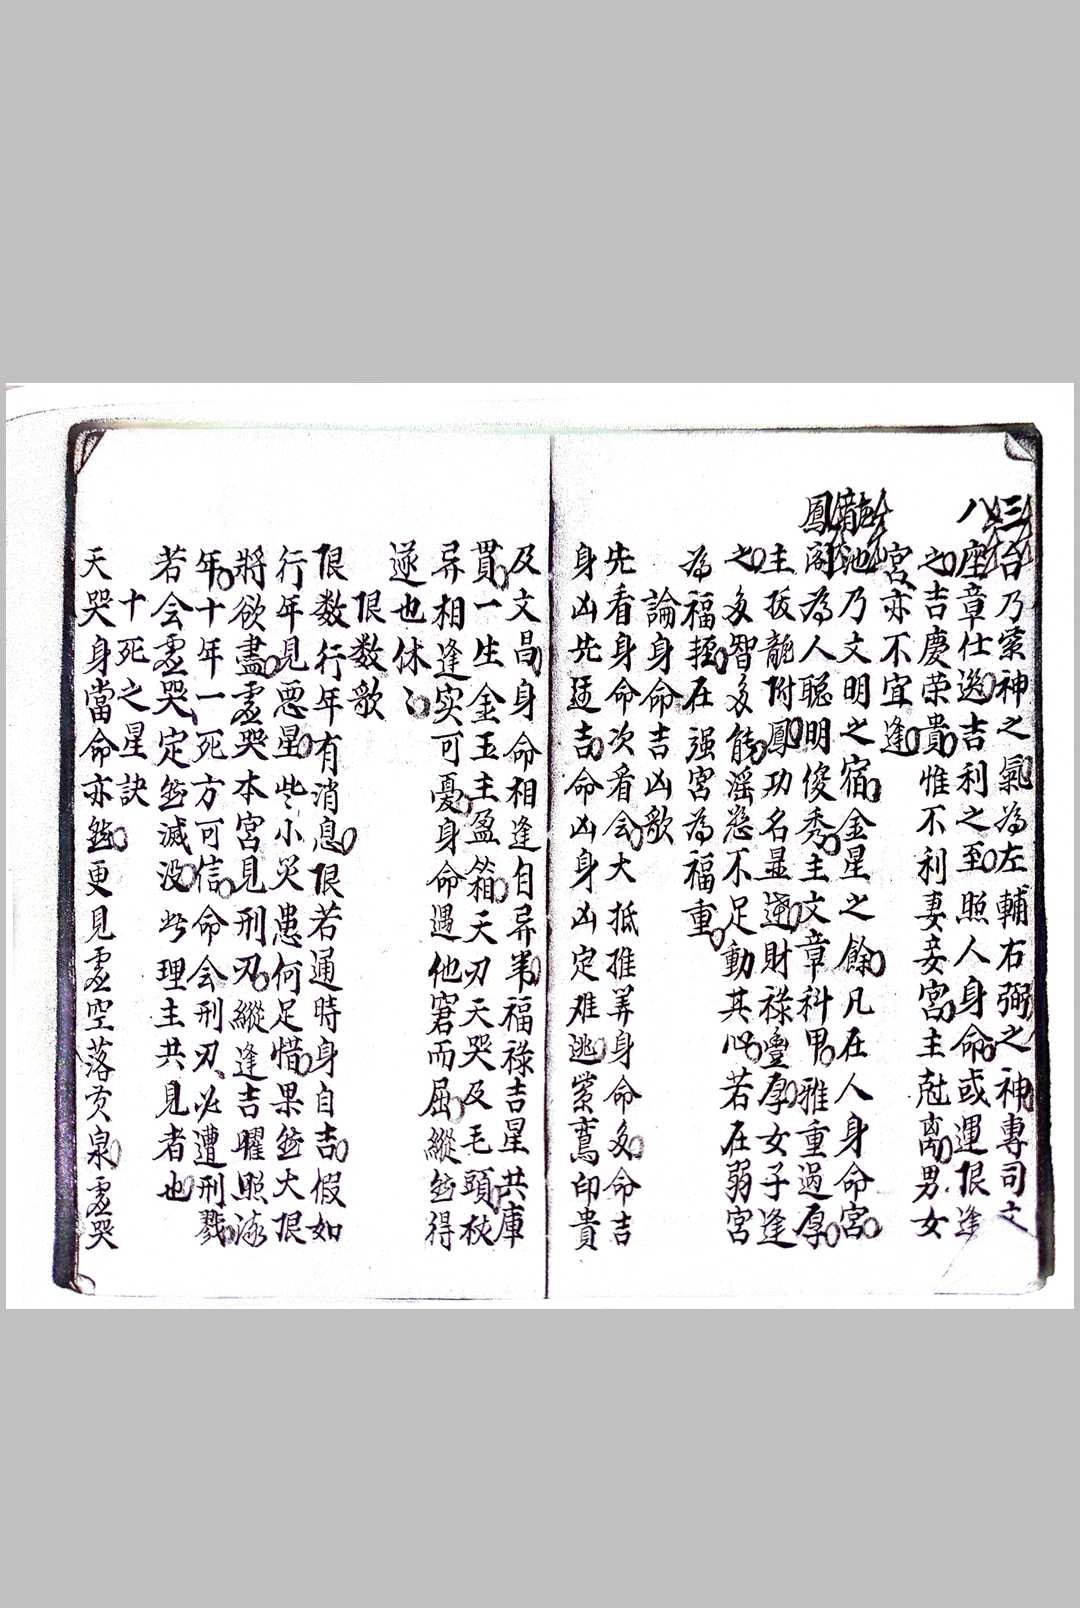 三台乃紫神之氣為左輔右弼之神專司文
八座章仕逸吉利之至照人身命或運限逢
之吉慶荣貴惟不利妻妾宮主尅离男女
宮亦不宜逢
龍池乃文明之宿金星之餘凡在人身命宮
鳳阁為人聪明俊秀主文章科甲雅重過厚
主扳龍附鳳功名显通財祿豊厚女子逢
之多智多能滛慾不足動其心若在弱宮
為福輕在强宮為福重
論身命吉凶歌
先看身命次看会大抵推筭身命多命吉
身凶先逺吉命凶身凶定难逃紫鸾印貴
及文昌身命相逢自异羊福祿吉星共庫
貫一生金玉主盈箱天刃天哭及毛頭杖
异相逢实可憂身命遇他窘而屈縱然得
遂也休〻
限数歌
限数行年有消息限若通時身自吉假如
行年見恶星些小災患何足惜果然大限
將欲盡虚哭本宮見刑刃縱逢吉曜照添
年十年一死方可信命会刑刃必遭刑戮
若会虚哭定然滅没此理主共見者也
十死之星訣
天哭身當命亦然更見虚空落黄泉虚哭